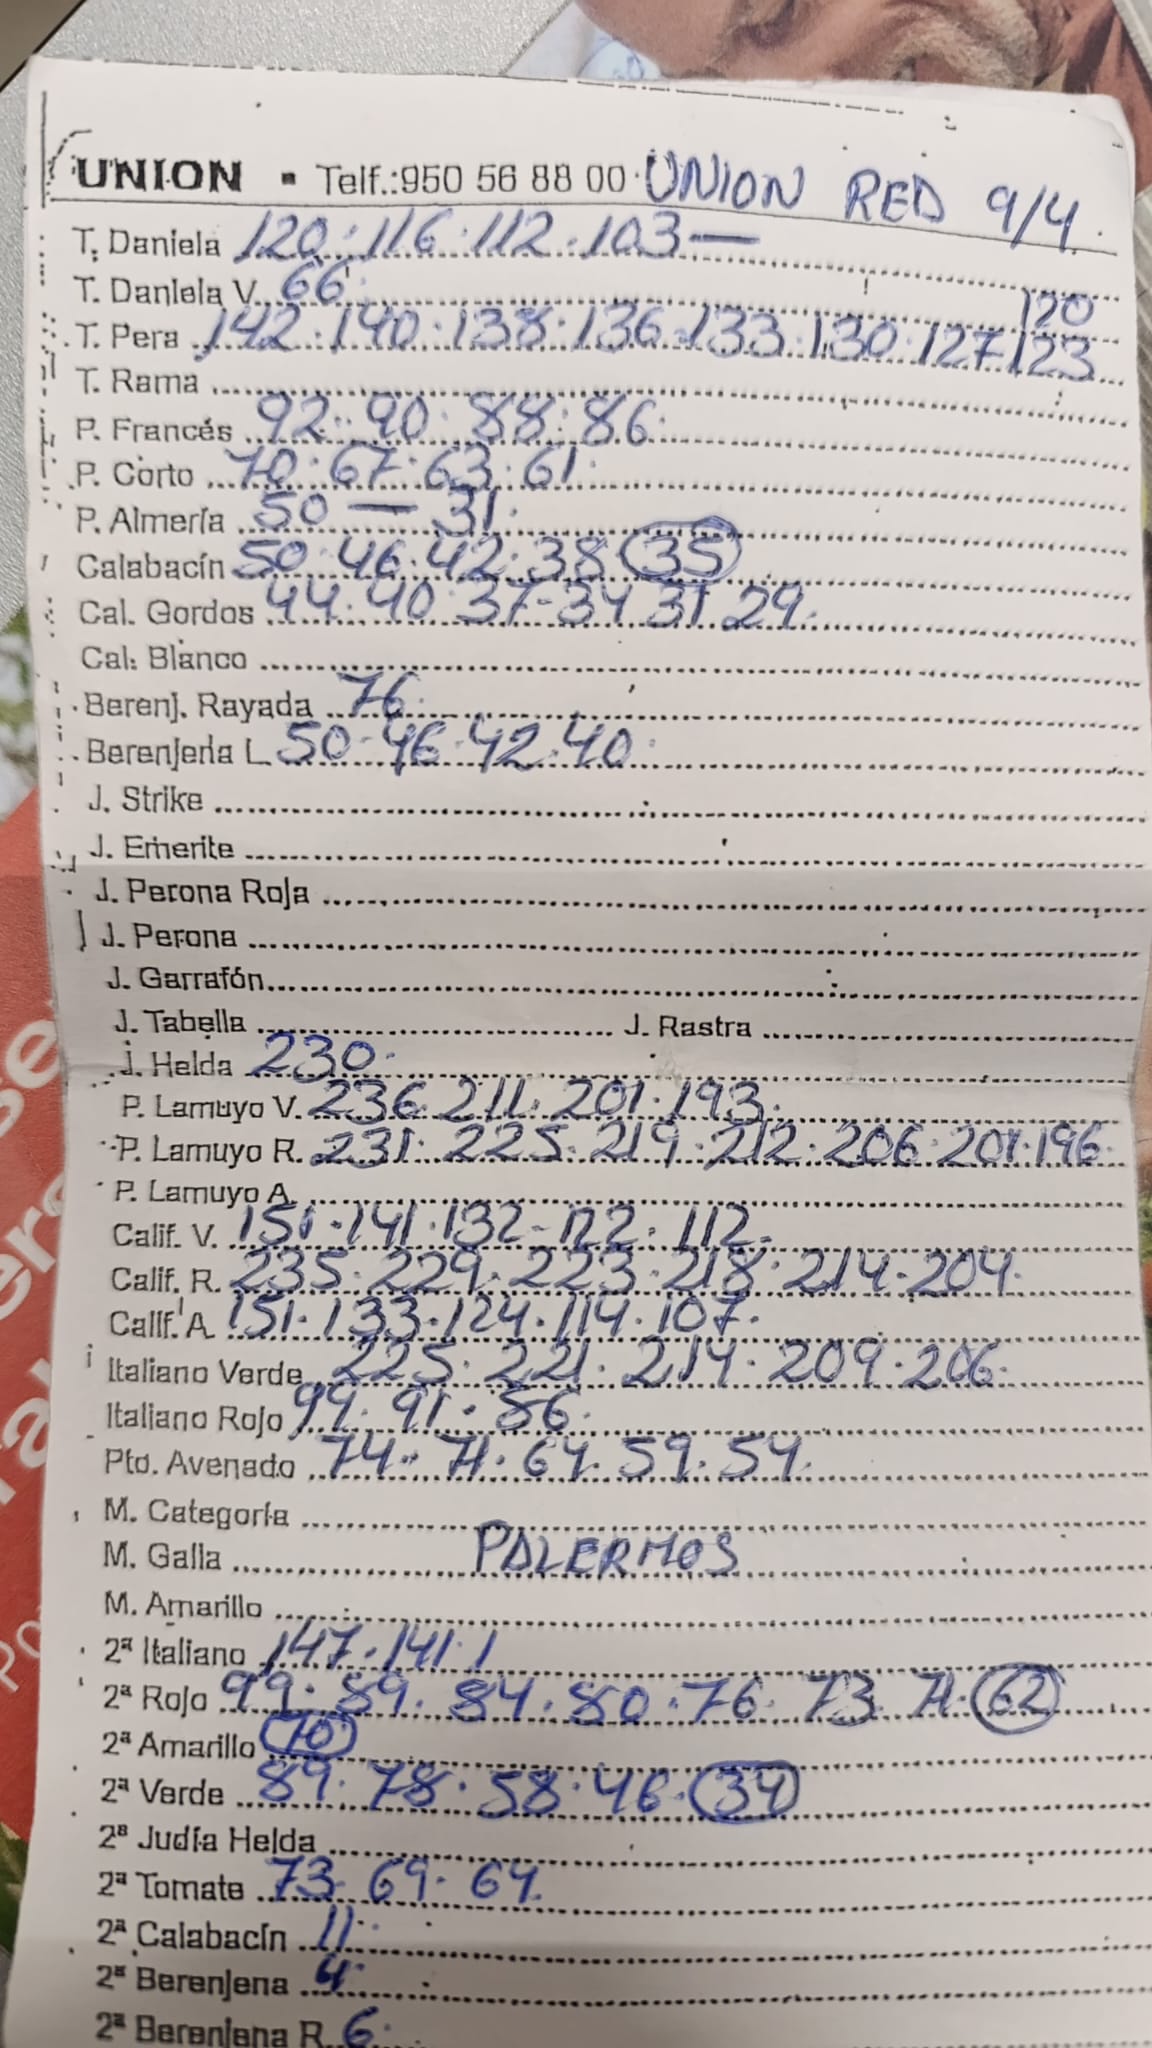 UNION ▪ Telf.:950 56 88 00 · UNION RED 9/4
T. Daniela 120 · 116 · 112 · 103 —
T. Daniela V. 66
120
T. Pera 142 · 140 · 138 · 136 · 133 · 130 · 127 123
T. Rama
P. Francés 92 · 90 · 88 · 86
P. Corto 70 · 67 · 63 · 61
P. Almería 50 — 31
Calabacín 50 · 46 · 42 · 38 35
Cal. Gordos 44 · 40 · 37 - 34 31 29
Cal. Blanco
Berenj. Rayada 76
Berenjena L 50 · 46 · 42 · 40
J. Strike
J. Emerite
J. Perona Roja
J. Perona
J. Garrafón
J. Tabella J. Rastra
J. Helda 230
P. Lamuyo V. 236 211 · 201 · 193
P. Lamuyo R. 231 · 225 · 219 · 212 · 206 · 201 · 196
P. Lamuyo A.
Calif. V. 151 · 141 · 132 - 122 · 112
Calif. R. 235 · 229 · 223 · 218 · 214 · 204
Calif. A 151 · 133 · 124 · 114 · 107
Italiano Verde 225 · 221 · 214 · 209 · 206
Italiano Rojo 99 · 91 · 86
Pto. Avenado 74 · 71 · 64 · 59 · 54
M. Categoría
M. Galla PALERMOS
M. Amarillo
2ª Italiano 147 · 141
2ª Rojo 99 · 89 · 84 · 80 · 76 · 73 71 · 62
2ª Amarillo 70
2ª Verde 89 · 78 · 58 · 46 · 34
2ª Judía Helda
2ª Tomate 73 · 69 · 64
2ª Calabacín 11
2ª Berenjena 4
2ª Berenjena R 6